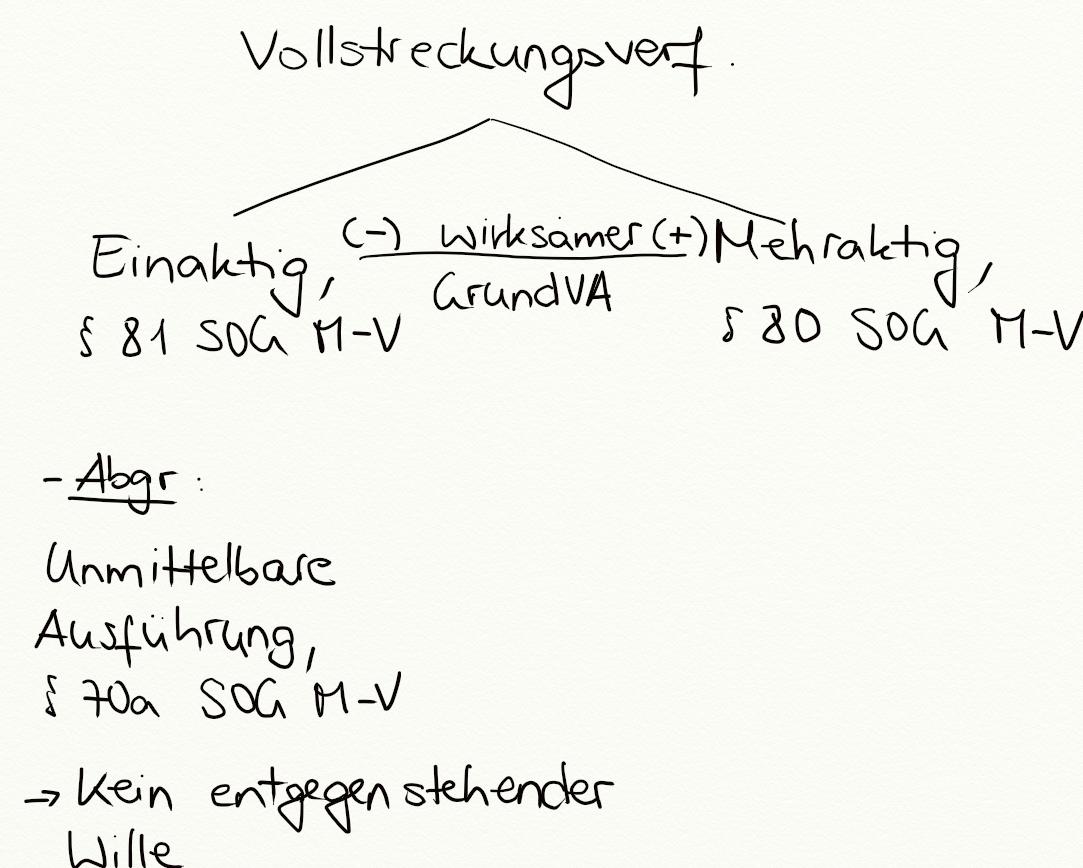 Vollstreckungsverf.
(-) wirksamer (+)
Einaktig, GrundVA Mehraktig,
§ 81 SOG M-V § 80 SOG M-V
- Abgr:
Unmittelbare
Ausführung,
§ 70a SOG M-V
→ Kein entgegenstehender
Wille